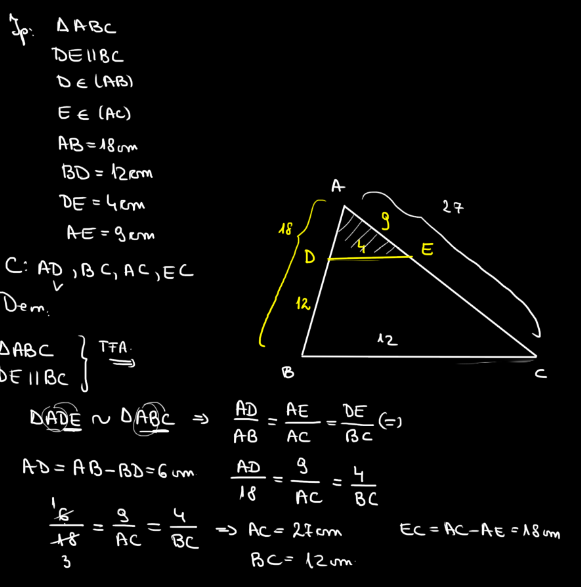 Ip: ΔABC
DE∥BC
D ∈ (AB)
E ∈ (AC)
AB = 18cm
BD = 12cm
DE = 4cm
AE = 9cm
C: AD, BC, AC, EC
Dem.
ΔABC
DE∥BC } TFA ⇒
A
27
9
18
4
D
E
12
12
B
C
ΔADE ~ ΔABC ⇒ AD/AB = AE/AC = DE/BC (=)
AD = AB - BD = 6cm AD/18 = 9/AC = 4/BC
1
6/18 = 9/AC = 4/BC ⇒ AC = 27cm EC = AC - AE = 18cm
3
BC = 12cm